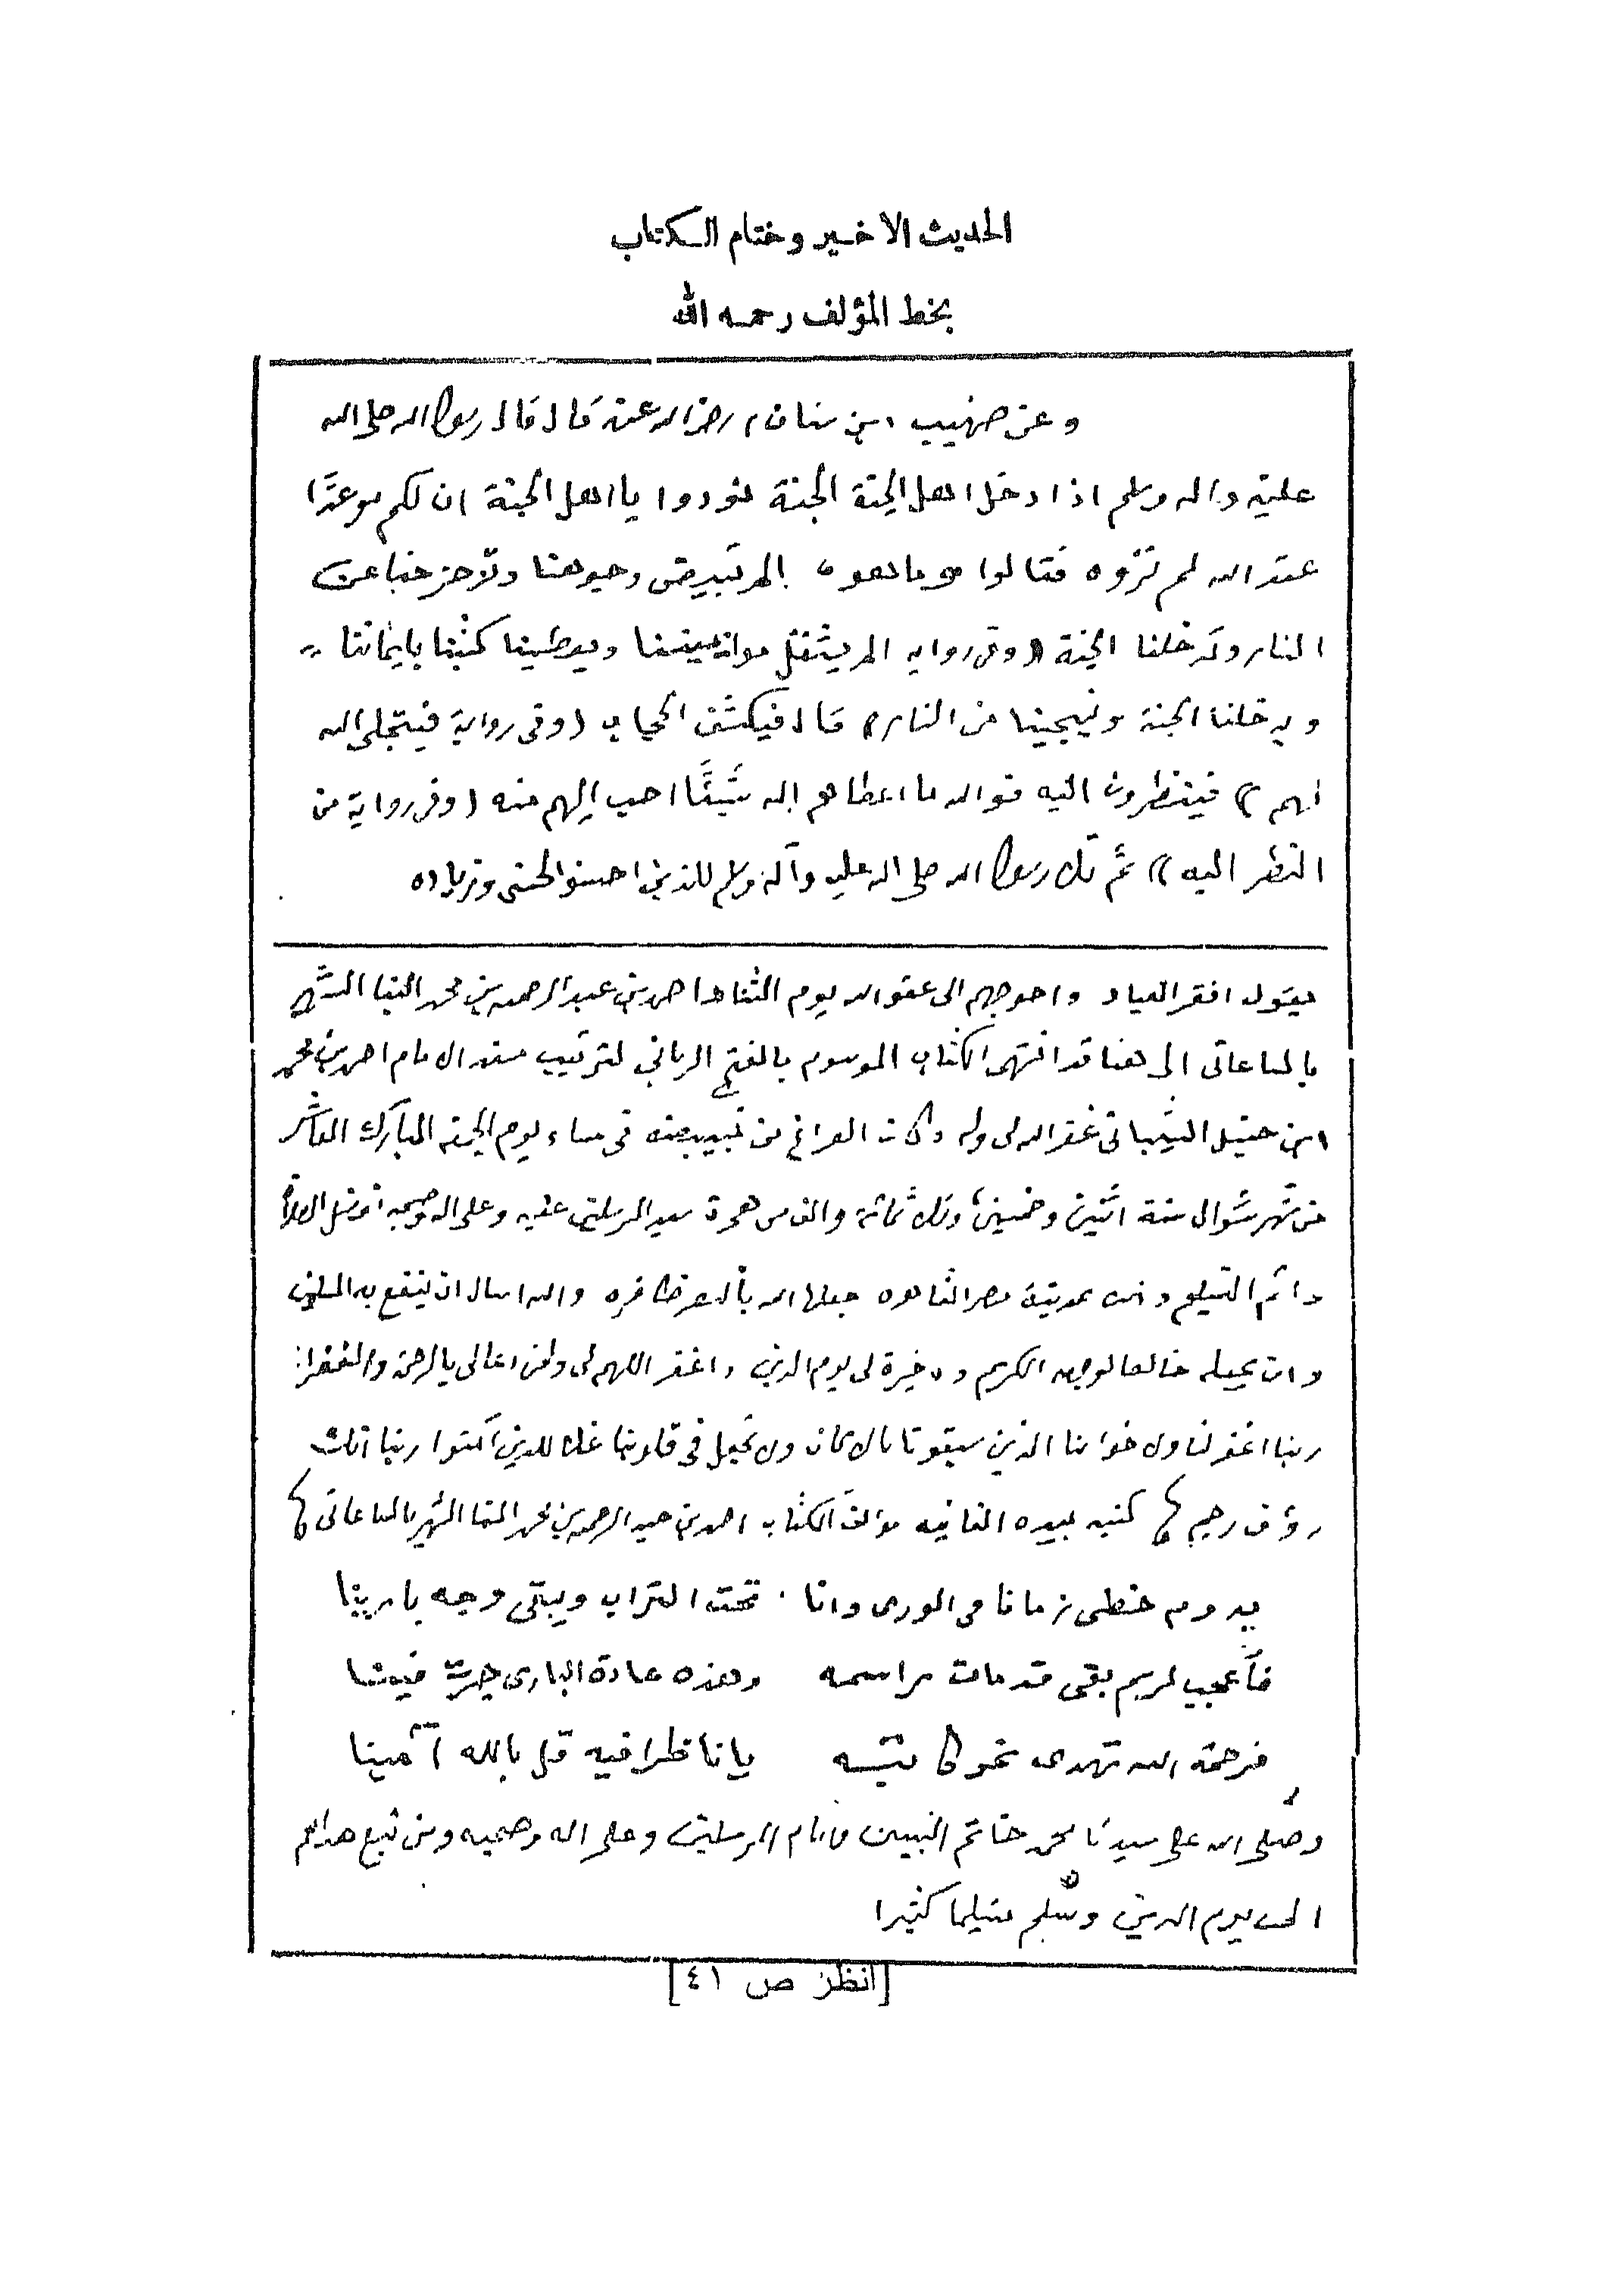 الحديث الاخير وختام الكتاب
بخط المؤلف رحمه الله
وعن صهيب ابن سنان رضى الله عنه قال قال رسول الله صلى الله
عليه واله وسلم اذا دخل اهل الجنة الجنة نودوا يا اهل الجنة ان لكم موعدًا
عند الله لم تروه فقالوا وما هو الم تبيض وجوهنا وتزحزحنا عن
النار وتدخلنا الجنة (وفى روايه الم يثقل موازيننا ويعطينا كتبنا بايماننا
ويدخلنا الجنة وينجينا من النار) قال فيكشف الحجاب (وفى رواية فيتجلى الله
لهم) فينظرون اليه فوالله ما اعطاهم الله شيئًا احب إليهم منه (وفى رواية من
النظر اليه) ثم تلا رسول الله صلى الله عليه وآله وسلم للذين احسنوا الحسنى وزياده
يقول افقر العباد واحوجهم الى عفو الله يوم التناد احمد بن عبد الرحمن بن محمد البنا الشهير
بالساعاتى الى هنا قد انتهى الكتاب الموسوم بالفتح الربانى لترتيب مسند الامام احمد بن محمد
ابن حنبل الشيبانى غفر الله لى وله وكان الفراغ من تبييضه فى مساء يوم الجمعة المبارك العاشر
من شهر شوال سنة اثنين وخمسين وثلاثمائة والف من هجرة سيد المرسلين عليه وعلى اله وصحبه افضل الصلاة
واتم التسليم وذلك بمدينة مصر القاهره جعلها الله بالنصر ظافره والله اسال ان ينفع به المسلمين
وان يجعله خالصا لوجهه الكريم وذخيرة لى يوم الدين واغفر اللهم لى ولمن دعا لى بالرحمة والغفران
ربنا اغفر لنا ولاخواننا الذين سبقونا بالايمان ولا تجعل فى قلوبنا غلا للذين آمنوا ربنا انك
رؤف رحيم كتبه بيده الفانيه مؤلف الكتاب احمد بن عبد الرحمن بن محمد البنا الشهير بالساعاتى
يدوم خطى زمانا فى الورى وانا تحت التراب ويبقى وجه بارينا
فأعجب لرسم بقى قد مات راسمه وهذه عادة البارى جرت فينا
فرحمة الله تهدى نحو كاتبه يا ناظرا فيه قل بالله آمينا
وصلى الله على سيدنا محمد خاتم النبيين وامام المرسلين وعلى اله وصحبه ومن تبع هداهم
الى يوم الدين وسلم تسليما كثيرا
[انظر ص ٤١]